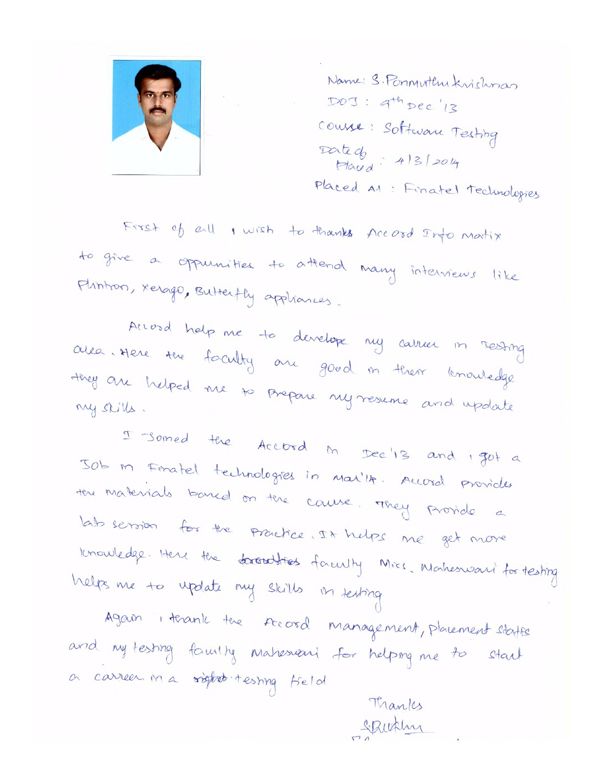 Name: S. Ponmuthu krishnan
DOJ : 9th Dec '13
Course : Software Testing
Date of
Placed : 4/3/2014
Placed At : Finatel Technologies
First of all i wish to thanks Accord Info matix
to give a oppunities to attend many interviews like
xerago, Butterfly appliances.
Accord help me to develope my carrer in Testing
area. Here the faculty are good in their knowledge
they are helped me to prepare my resume and update
my skills.
I Joined the Accord in Dec'13 and i got a
Job in Finatel technologies in Mar'14. Accord provides
the materials based on the cause. They provide a
lab session for the practice. It helps me get more
knowledge. Here the faculty Miss. Maheswari for testing
helps me to update my skills in testing
Again i thank the Accord management, placement staffs
and my testing faculty maheswari for helping me to start
a carreer in a testing field
Thanks